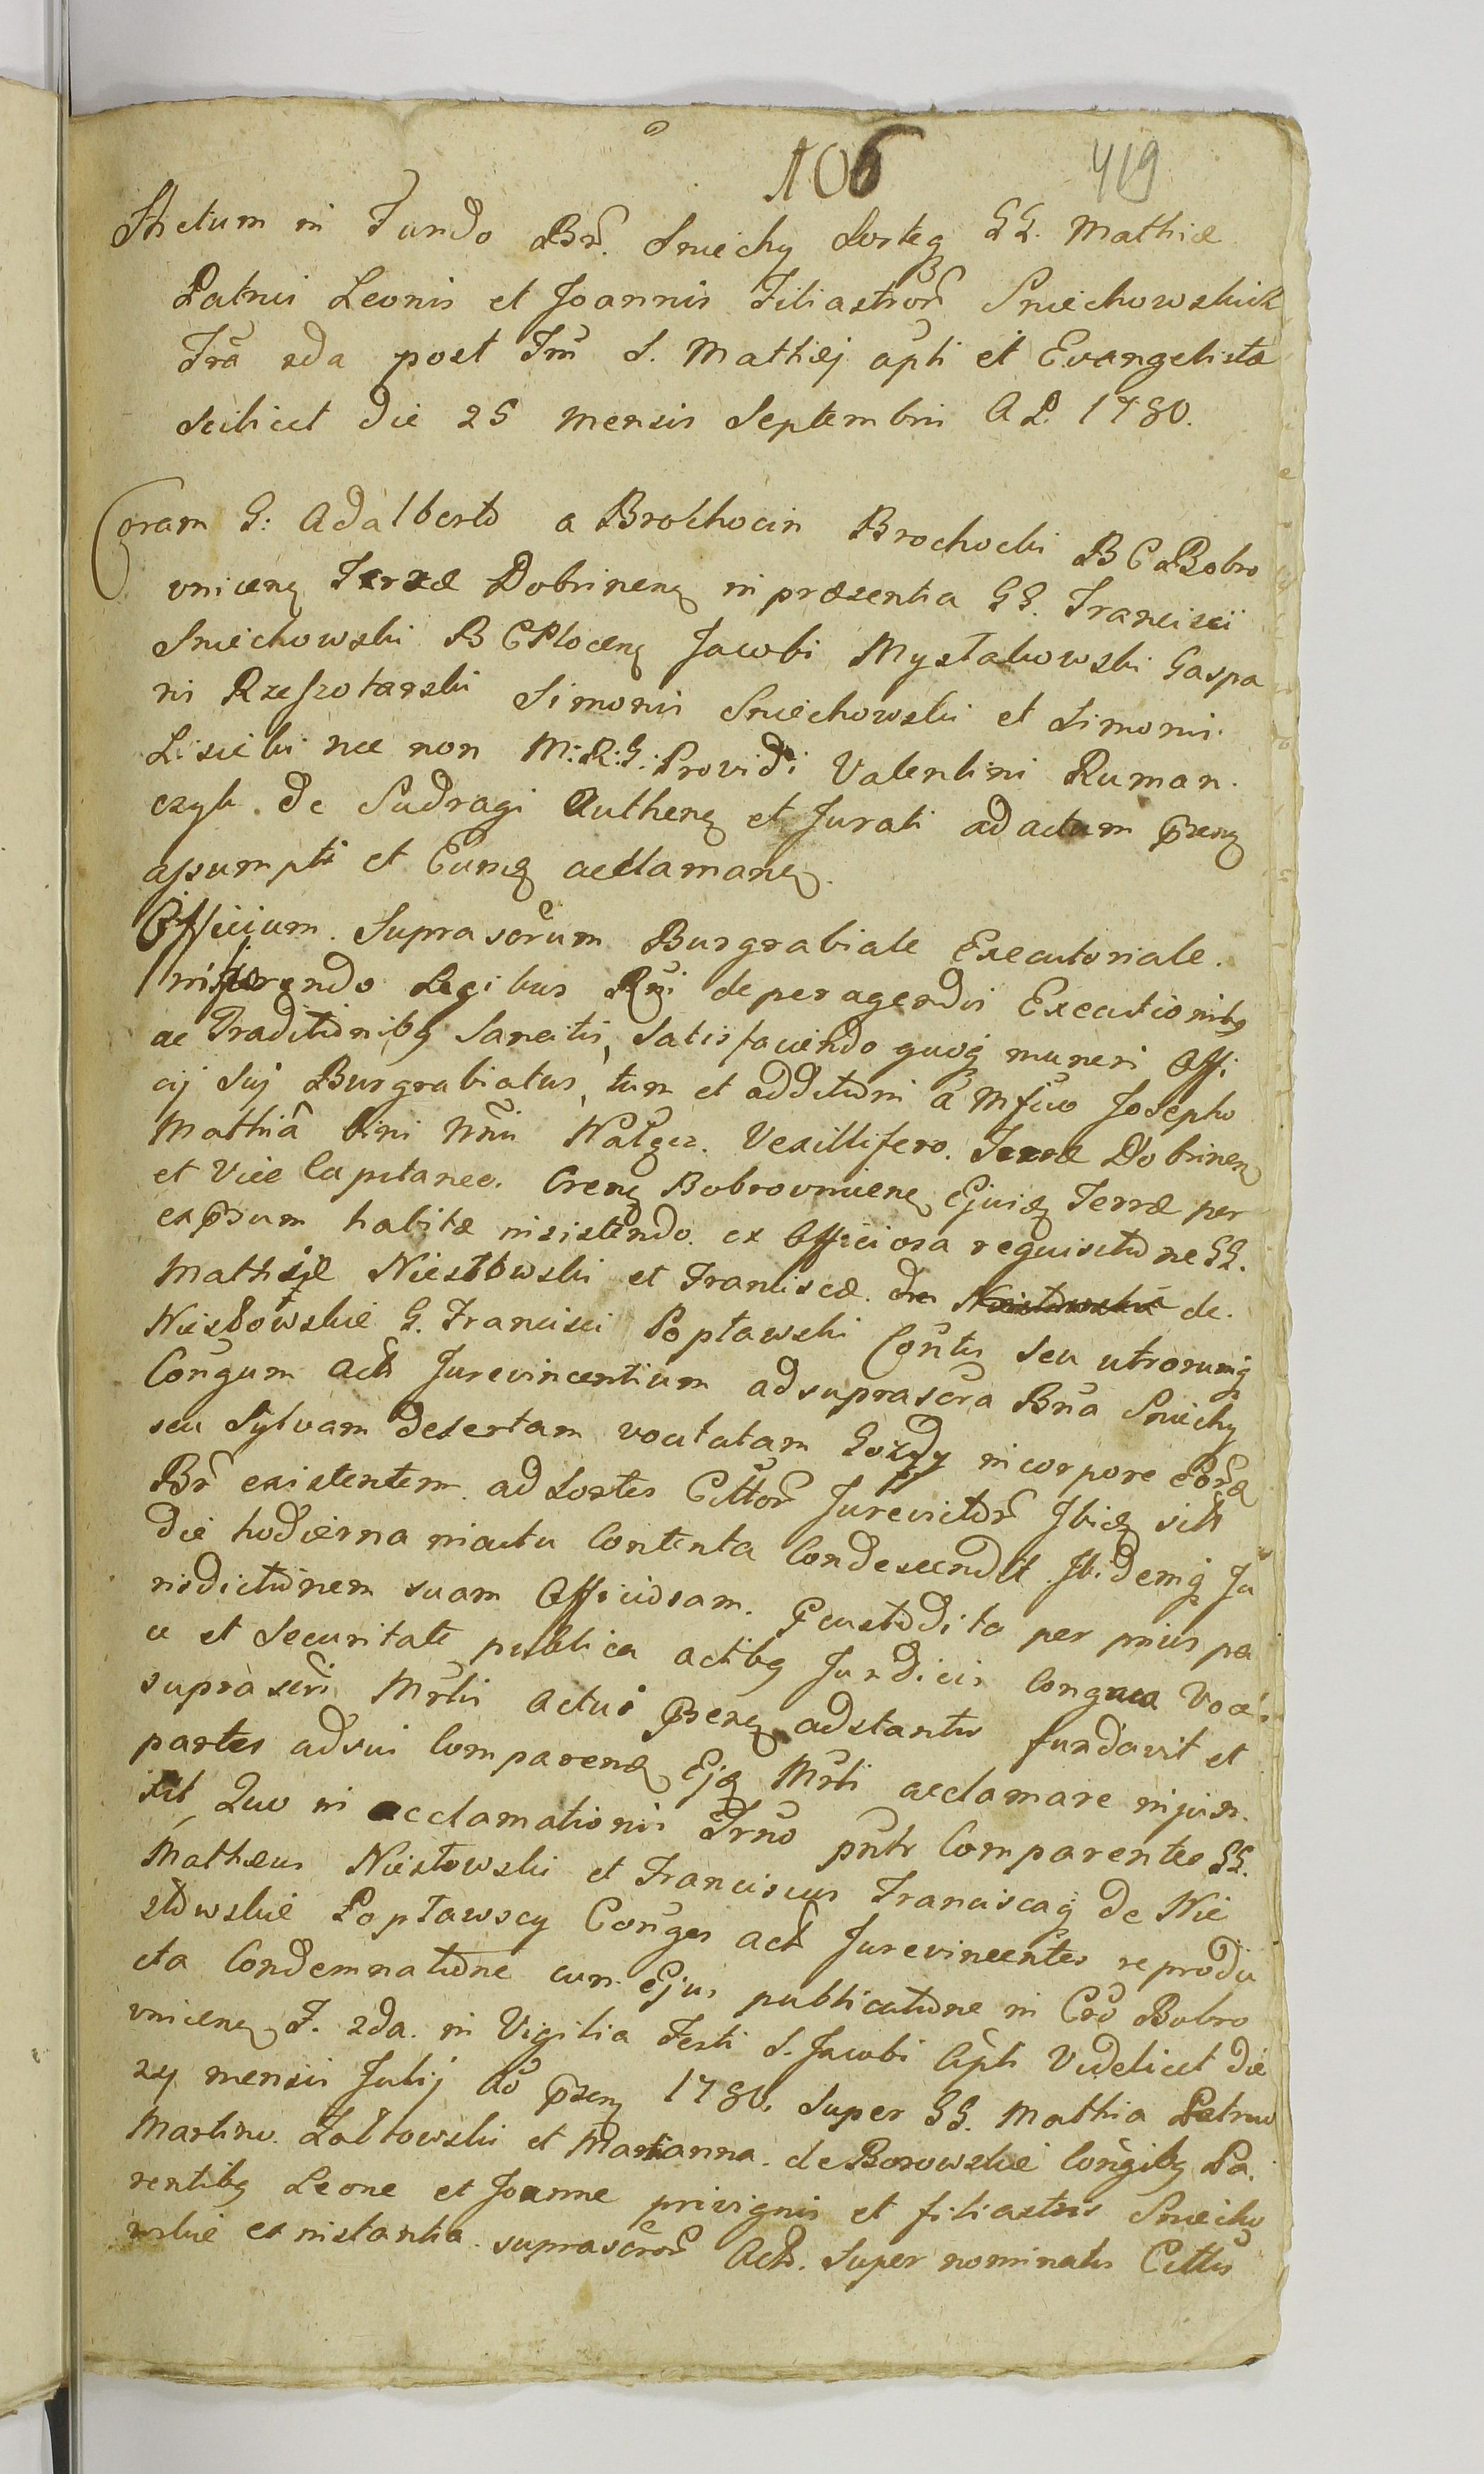 106 419
Actum in Fundo Bnr. Sniechy Sorteq GG. Mathiæ
Patrui Leonis et Joannis Filiastror Sniechowskich
Fra 2da post Fm S. Mathæj apli et Evangelistæ
Scilicet die 25 mensis Septembris AD. 1780.
Coram G: Adalberto a Brochocin Brochocki BC Bobro
vnicenq Terræ Dobrinenq in præsentia GG. Francisci
Sniechowski BCPlocenq Jacobi Mystakowski Gaspa
ri Rzeszotarski Simonis Sniechowski et Simonis
Lisicki nec non M:R:G: Providi Valentini Ruman.
czyk. de Sudragi Authenq et Jurati ad actum pzenq
assumpti et Eumq acclamanq.
Officium Suprascrum Burgrabiale Executoriale.
Inhærendo Legibus Rni de peragendis Executionibq
ac Traditionibq Sancitis, Satisfaciendo quoq muneri Offi
cij Suj Burgrabiatus, tum et additioni a Mfico Josepho
Mathia bini Nnis Nałęcz. Vexillifero. Terræ Dobrinenq
et Vice Capitaneo. Crenq Bobrovnicenq Ejusq Terræ per
expsum habitæ insistendo. ex Officiosa requisitione GG.
Mathiæ Niestowski et Franciscæ de
Niestowskie G. Francisci Popławski Contis seu utrorumq
Congum Acts Jurevincentium ad suprascra Bna Sniechy
seu Sylvam desertam vocitatam Gozdy in corpore eorq
Br existentem. ad Sortes Cittor Jurevictor Ibiq sits
die hodierna in actu Contenta Condescendit. Ibidemq Ju
risdictionem suam Officiosam. Pcustodita per prius pa
ce et Securitate publica actibq Juridicis Congrua Voce
suprascri Mrlis Actui Pzenq adstantis fundavit et
partes ad sui Comparenq Ejq Mrli acclamare injun.
xit, Quo in acclamationis Trno pnts Comparentes GG.
Mathæus Niestowski et Franciscus Franciscaq de Nie
stowskie Popławscy Conges Acts Jurevincentes reprodu
cta Condemnatione cum Ejus publicatione in Cro Bobro
vnicenq F. 2da. in Vigilia Festi S. Jacobi Apli Videlicet die
24 mensis Julij Ao pzenq 1780, Super GG. Mathia Patruo
Martino. Zabłowski et Marianna. de Borowskie Congibq Pa.
rentibq Leone et Joanne privignis et filiastris Sniecho
wskie ex instantia. suprascror Acts. Super nominatis Cittis